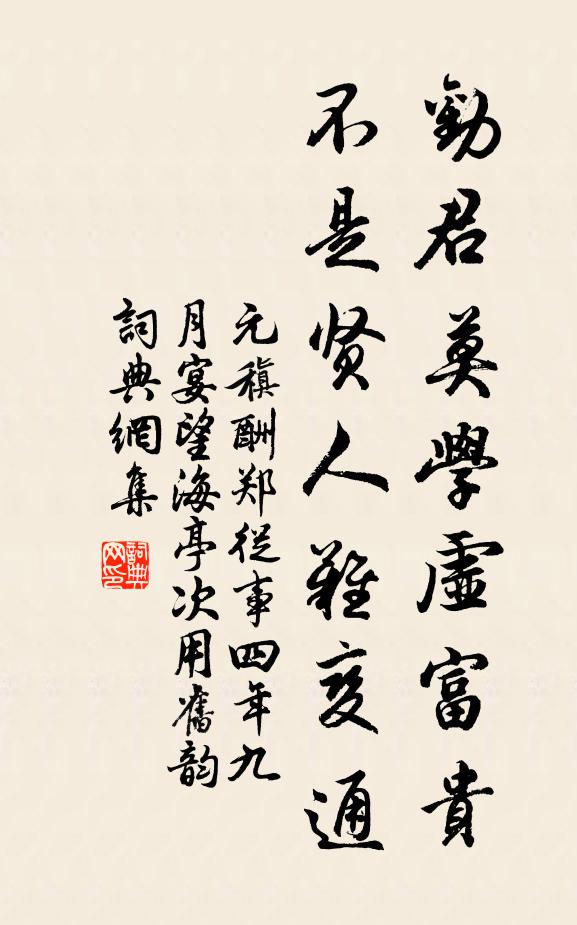 勸君莫學虛富貴
不是贤人難変通
元稹酬郑從事四年九
月宴望海亭次用舊韵
詞典網集
詞典网印